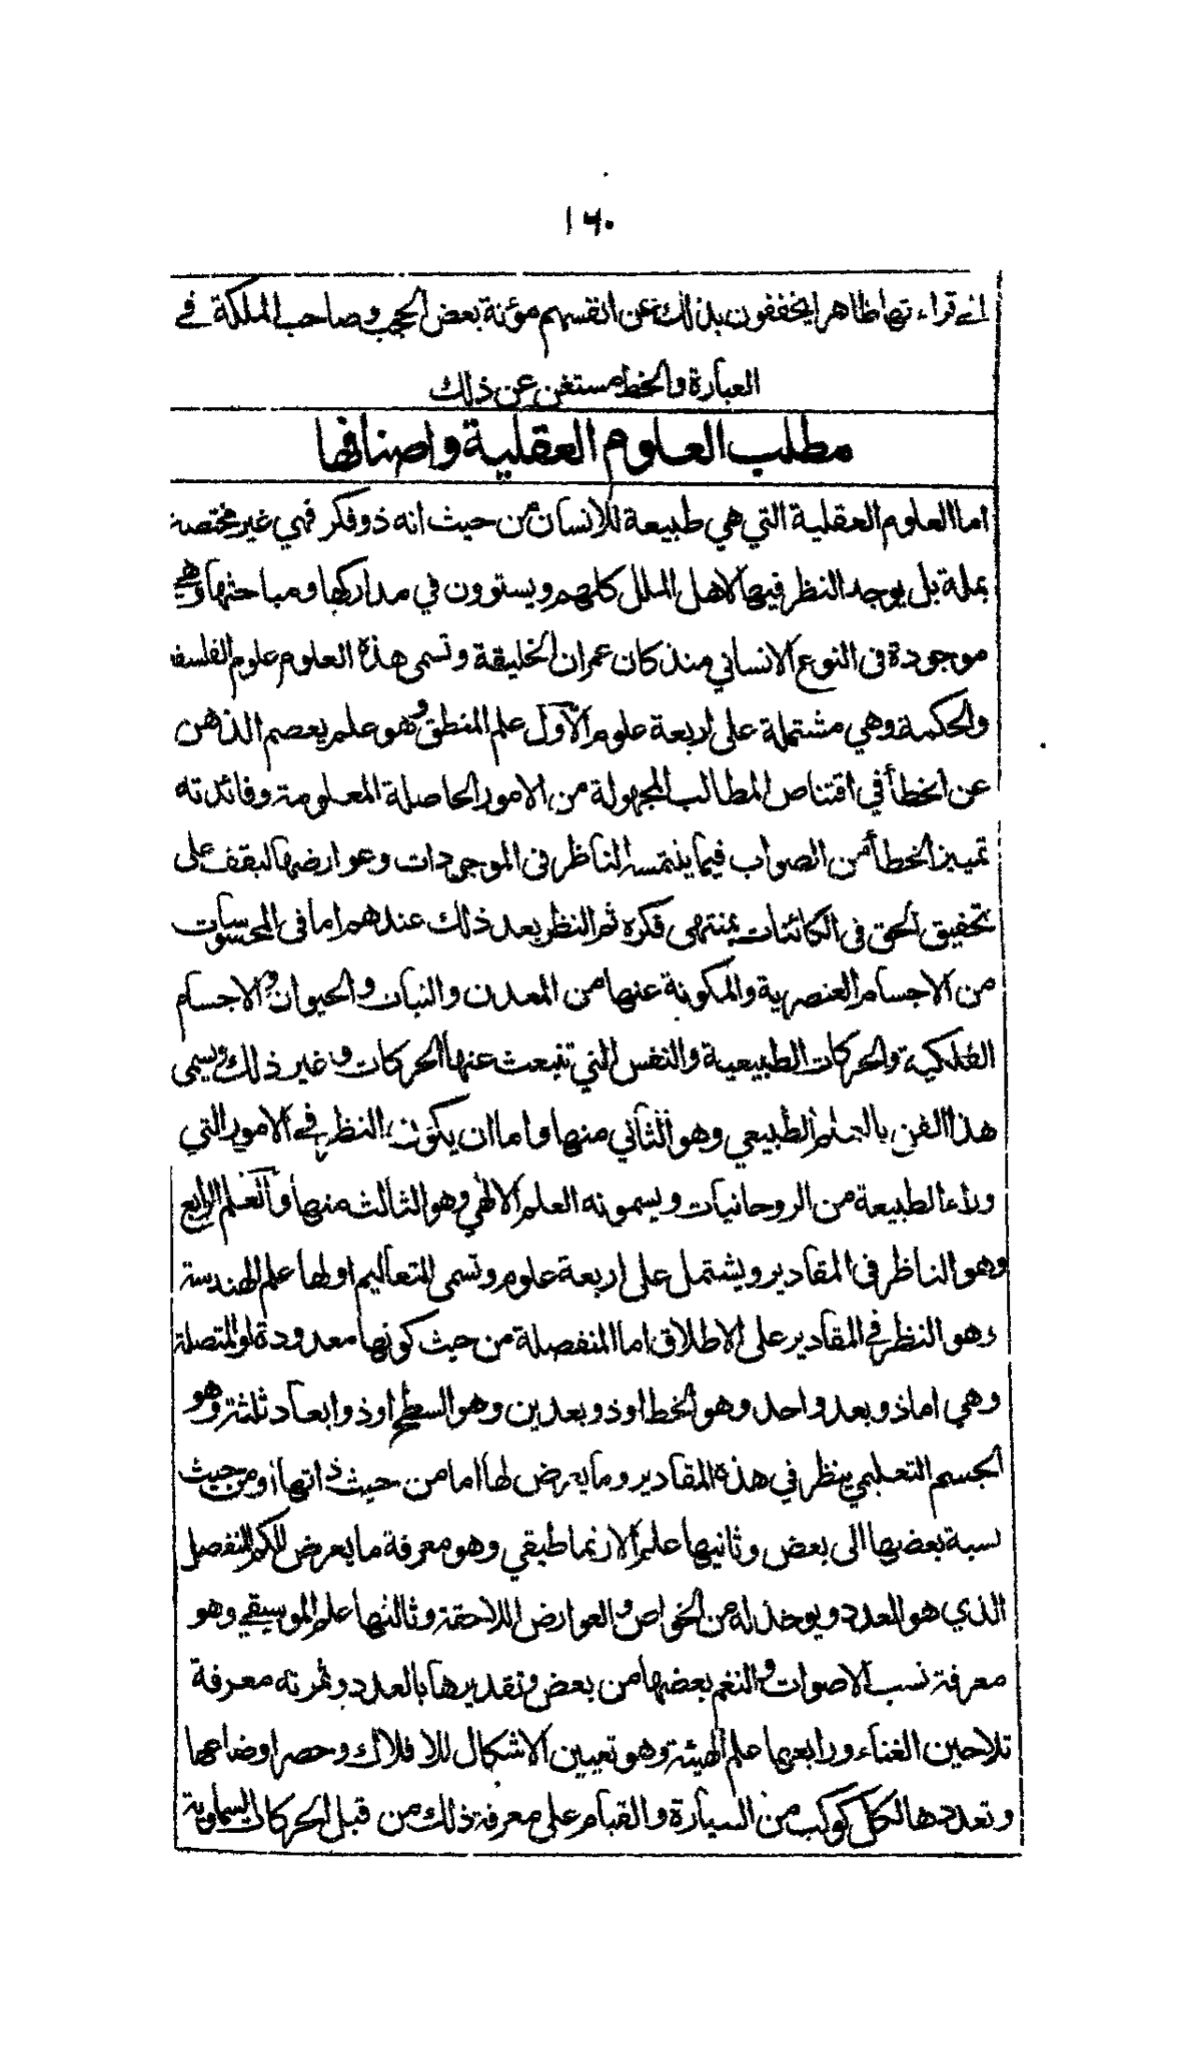 ١٦٠
في قراءتها ظاهرا يخففون بذلك عن انفسهم مؤنة بعض الحجب وصاحب الملكة في
العبارة والخط مستغن عن ذلك
مطلب العلوم العقلية واصنافها
اما العلوم العقلية التي هي طبيعة للانسان من حيث انه ذو فكر فهي غير مختصة
بملة بل يوجد النظر فيها لاهل الملل كلهم ويستوون في مداركها ومباحثها وهي
موجودة في النوع الانساني منذ كان عمران الخليقة وتسمى هذه العلوم علوم الفلسفة
والحكمة وهي مشتملة على اربعة علوم الأول علم المنطق وهو علم يعصم الذهن
عن الخطأ في اقتناص المطالب المجهولة من الامور الحاصلة المعلومة وفائدته
تمييز الخطأ من الصواب فيما يلتمسه الناظر في الموجودات وعوارضها ليقف على
تحقيق الحق في الكائنات بمنتهى فكره ثم النظر بعد ذلك عندهم اما في المحسوسات
من الاجسام العنصرية والمكونة عنها من المعدن والنبات والحيوان والاجسام
الفلكية والحركات الطبيعية والنفس التي تنبعث عنها الحركات وغير ذلك ويسمى
هذا الفن بالعلم الطبيعي وهو الثاني منها واما ان يكون النظر في الامور التي
وراء الطبيعة من الروحانيات ويسمونه العلم الالهي وهو الثالث منها والعلم الرابع
وهو الناظر في المقادير ويشتمل على اربعة علوم وتسمى التعاليم اولها علم الهندسة
وهو النظر في المقادير على الاطلاق اما المنفصلة من حيث كونها معدودة او المتصلة
وهي اما ذو بعد واحد وهو الخط او ذو بعدين وهو السطح او ذو ابعاد ثلثة وهو
الجسم التعليمي ينظر في هذه المقادير وما يعرض لها اما من حيث ذاتها او من حيث
نسبة بعضها الى بعض وثانيها علم الارتماطيقي وهو معرفة ما يعرض للكم المنفصل
الذي هو العدد ويوخذ له من الخواص والعوارض اللاحقة وثالثها علم الموسيقي وهو
معرفة نسب الاصوات والنغم بعضها من بعض وتقديرها بالعدد وثمرته معرفة
تلاحين الغناء ورابعها علم الهيئة وهو تعيين الاشكال للافلاك وحصر اوضاعها
وتعددها لكل كوكب من السيارة والقيام على معرفة ذلك من قبل الحركات السماوية